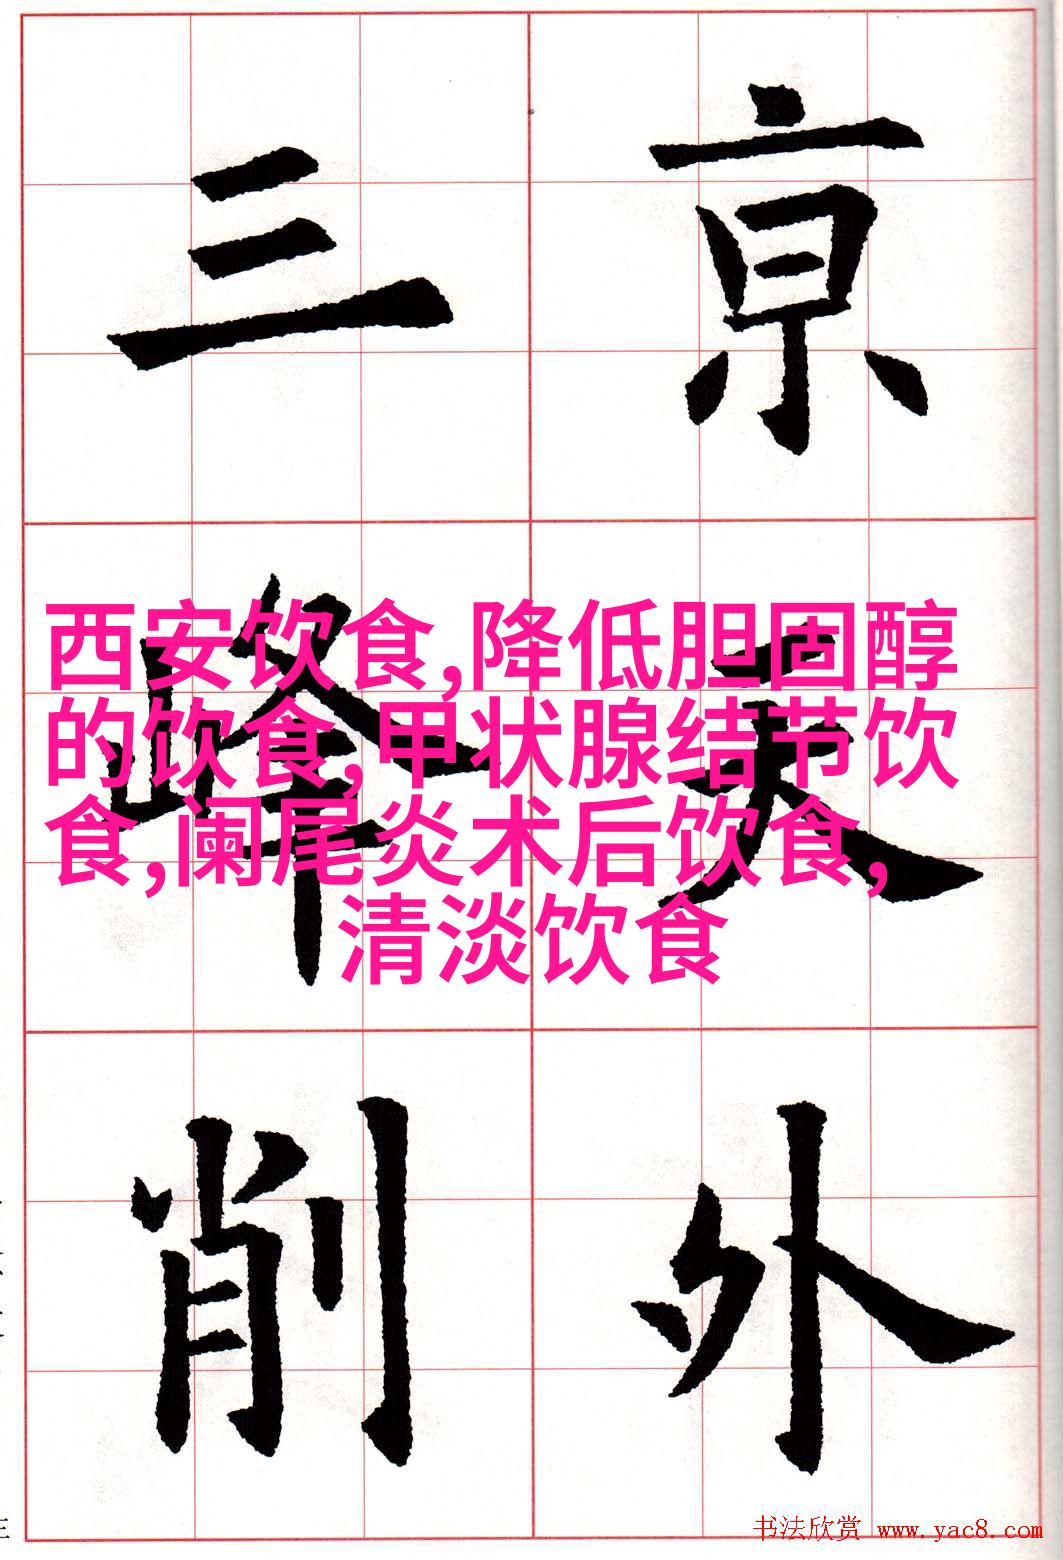 亰天外
三峰削
西安饮食,降低胆固醇
的饮食,甲状腺结节饮
食,阑尾炎术后饮食,
清淡饮食
书法欣赏 www.yac8.com